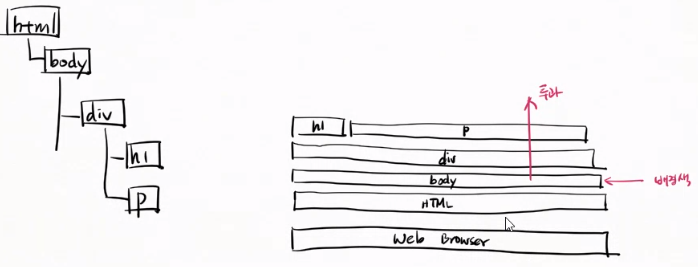 html
body
div
h1
p
투과
h1 p
div
body
배경색
HTML
Web Browser